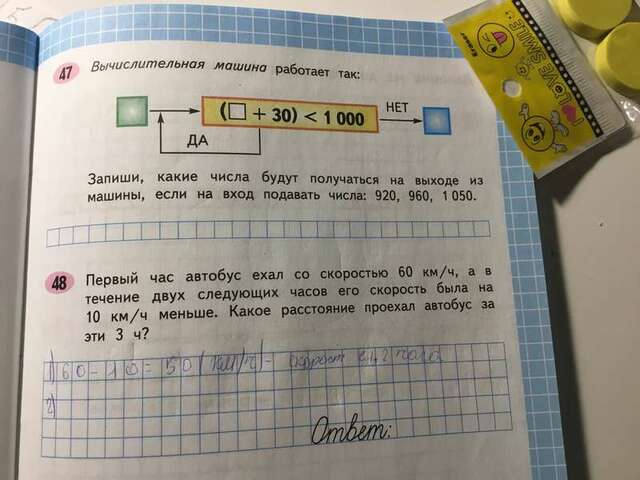 47 Вычислительная машина работает так:
(□ + 30) < 1 000
НЕТ
ДА
Запиши, какие числа будут получаться на выходе из
машины, если на вход подавать числа: 920, 960, 1 050.
48 Первый час автобус ехал со скоростью 60 км/ч, а в
течение двух следующих часов его скорость была на
10 км/ч меньше. Какое расстояние проехал автобус за
эти 3 ч?
1) 60-10=50 (км/ч)-
2)
Ответ:
Eraser
I LOVE SMILE